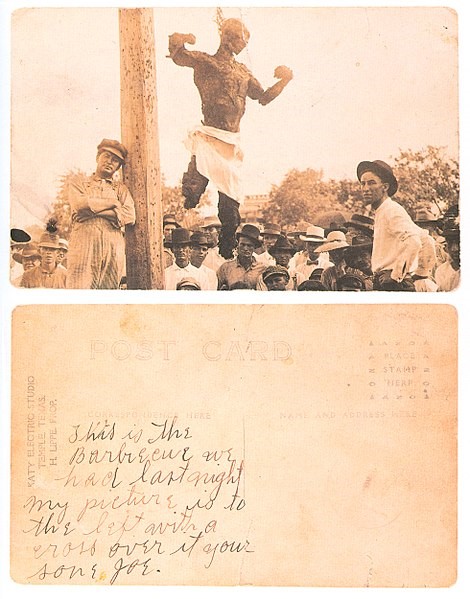 POST CARD
PLACE
STAMP
HERE
CORRESPONDENCE HERE
NAME AND ADDRESS HERE
KATY ELECTRIC STUDIO
TEMPLE TEXAS.
H. LIPPE PROP.
This is the
Barbecue we
had last night
My picture is to
the left with a
cross over it your
sone Joe.